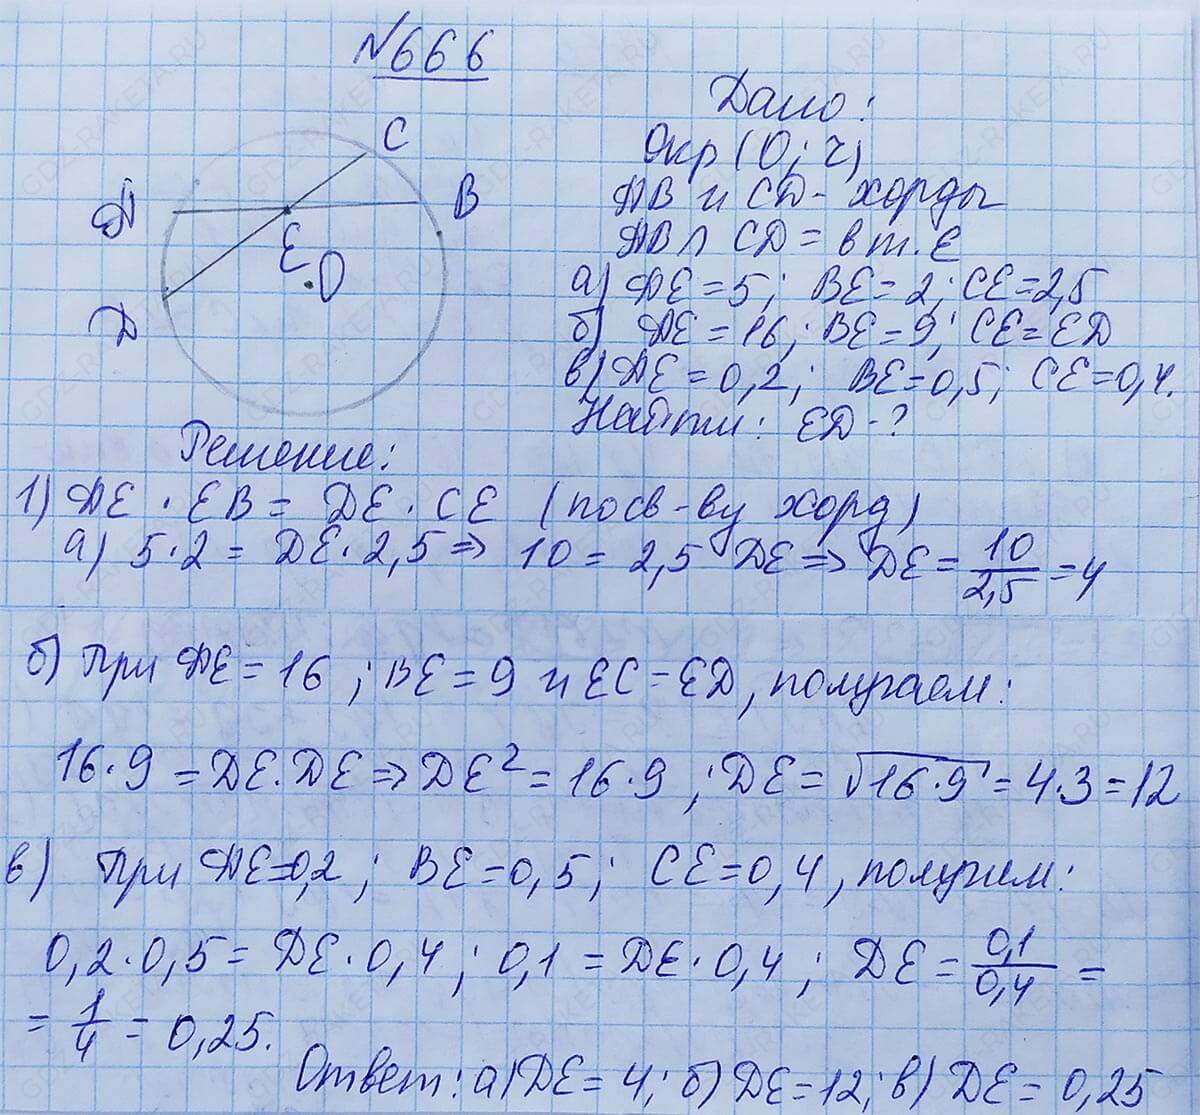 №666
Дано:
Окр (О; r)
АВ и CD - хорды
АВ ∩ CD = в т. Е
а) АЕ = 5; ВЕ = 2; СЕ = 2,5
б) АЕ = 16; ВЕ = 9; СЕ = ЕD
в) АЕ = 0,2; ВЕ = 0,5; СЕ = 0,4.
Найти: ED - ?
C
A
B
E
O
D
Решение:
1) АЕ · ЕВ = DE · СЕ (по св-ву хорд)
а) 5·2 = DE·2,5 => 10 = 2,5 DE => DE = 10/2,5 = 4
б) При АЕ = 16; ВЕ = 9 и ЕС = ED, получаем:
16·9 = DE·DE => DE² = 16·9; DE = √16·9 = 4·3 = 12
в) При АЕ = 0,2; ВЕ = 0,5; СЕ = 0,4, получим:
0,2·0,5 = DE·0,4; 0,1 = DE·0,4; DE = 0,1/0,4 =
= 1/4 = 0,25.
Ответ: а) DE = 4; б) DE = 12; в) DE = 0,25